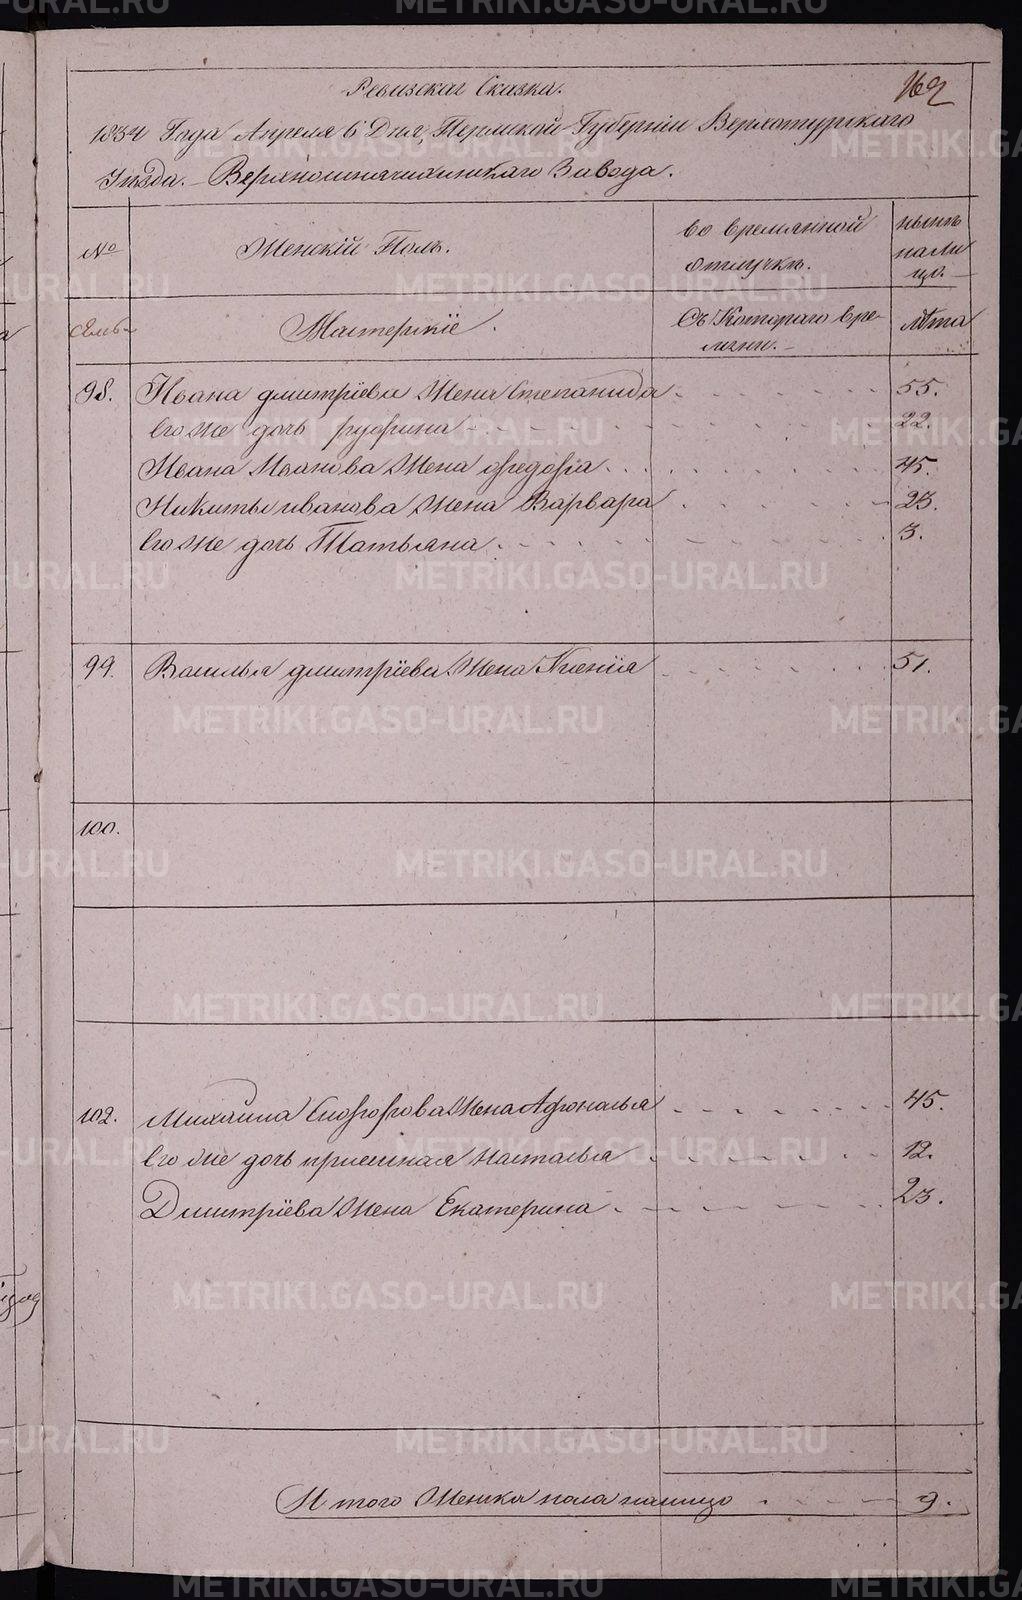 162
Ревизская Сказка.
1834 Года Апреля 6 Дня, Пермской Губернии Верхотурского
Уезда. Завода.
№
Женскій Полъ.
во времянной
отлучкѣ.
нынѣ
нали
цо.
Мастерскіе.
Съ Котораго вре-
мени.
лѣта
98. Ивана дмитріева Жена Степанида 55.
его же дочь руфина 22.
Ивана Иванова Жена федосіа 45.
Никиты иванова жена Варвара 23.
его же дочь Татьяна 3.
99. Василья дмитріева Жена Ксеніия 51.
100.
102. Михаила Жена Афонасья 45.
его же дочь приемная настасья 12.
Дмитріева Жена Екатерина 23.
Итого Женска пола налицо 9.
METRIKI.GASO-URAL.RU